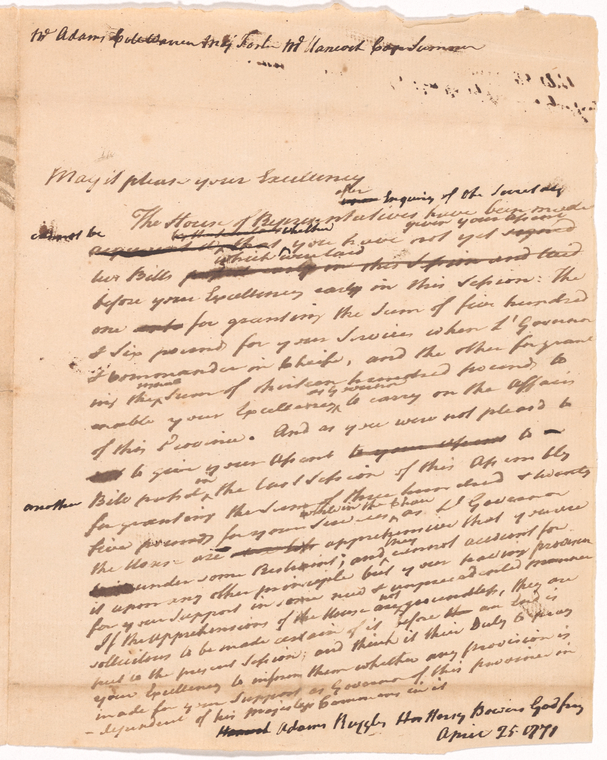 Mr Adams Col Warren Maj Foster Mr Hancock Cap Sumner
May it please your Excellency
after
The House of Representatives have been made Enquiry of the Secretary
cannot be whether given your Assent
that you have not yet signed
which were laid
two Bills passed early in this Session and laid
before your Excellency early in this Session: The
one for granting the Sum of five hundred
& Six pounds for your Services when Lt Governor
& Commander in Cheife, and the other for grant
usual
ing the Sum of thirteen hundred pounds to
as Governor
enable your Excellency to carry on the Affairs
of this Province. And as you were not pleased to
to give your Assent to your Assent to a
another Bill passd in the last Session of this Assembly
for granting the Sum of three hundred & twenty
while in the Chair
five pounds for your Services as Lt Governor
the House are apprehensive that you are
under some Restraint; and they cannot account for
it upon any other principle but your having provision
for your Support in some new & unprecedented manner
If the apprehensions of the House are not groundless, they are
sollicitous to be made certain of it before an End is
put to the present Session; and think it their Duty to pray
your Excellency to inform them whether any provision is
made for your Support as Governor of this province in
-dependent of his Majestys Commons in it
Adams Ruggles Hersey Bowers Godfrey
April 25 1771